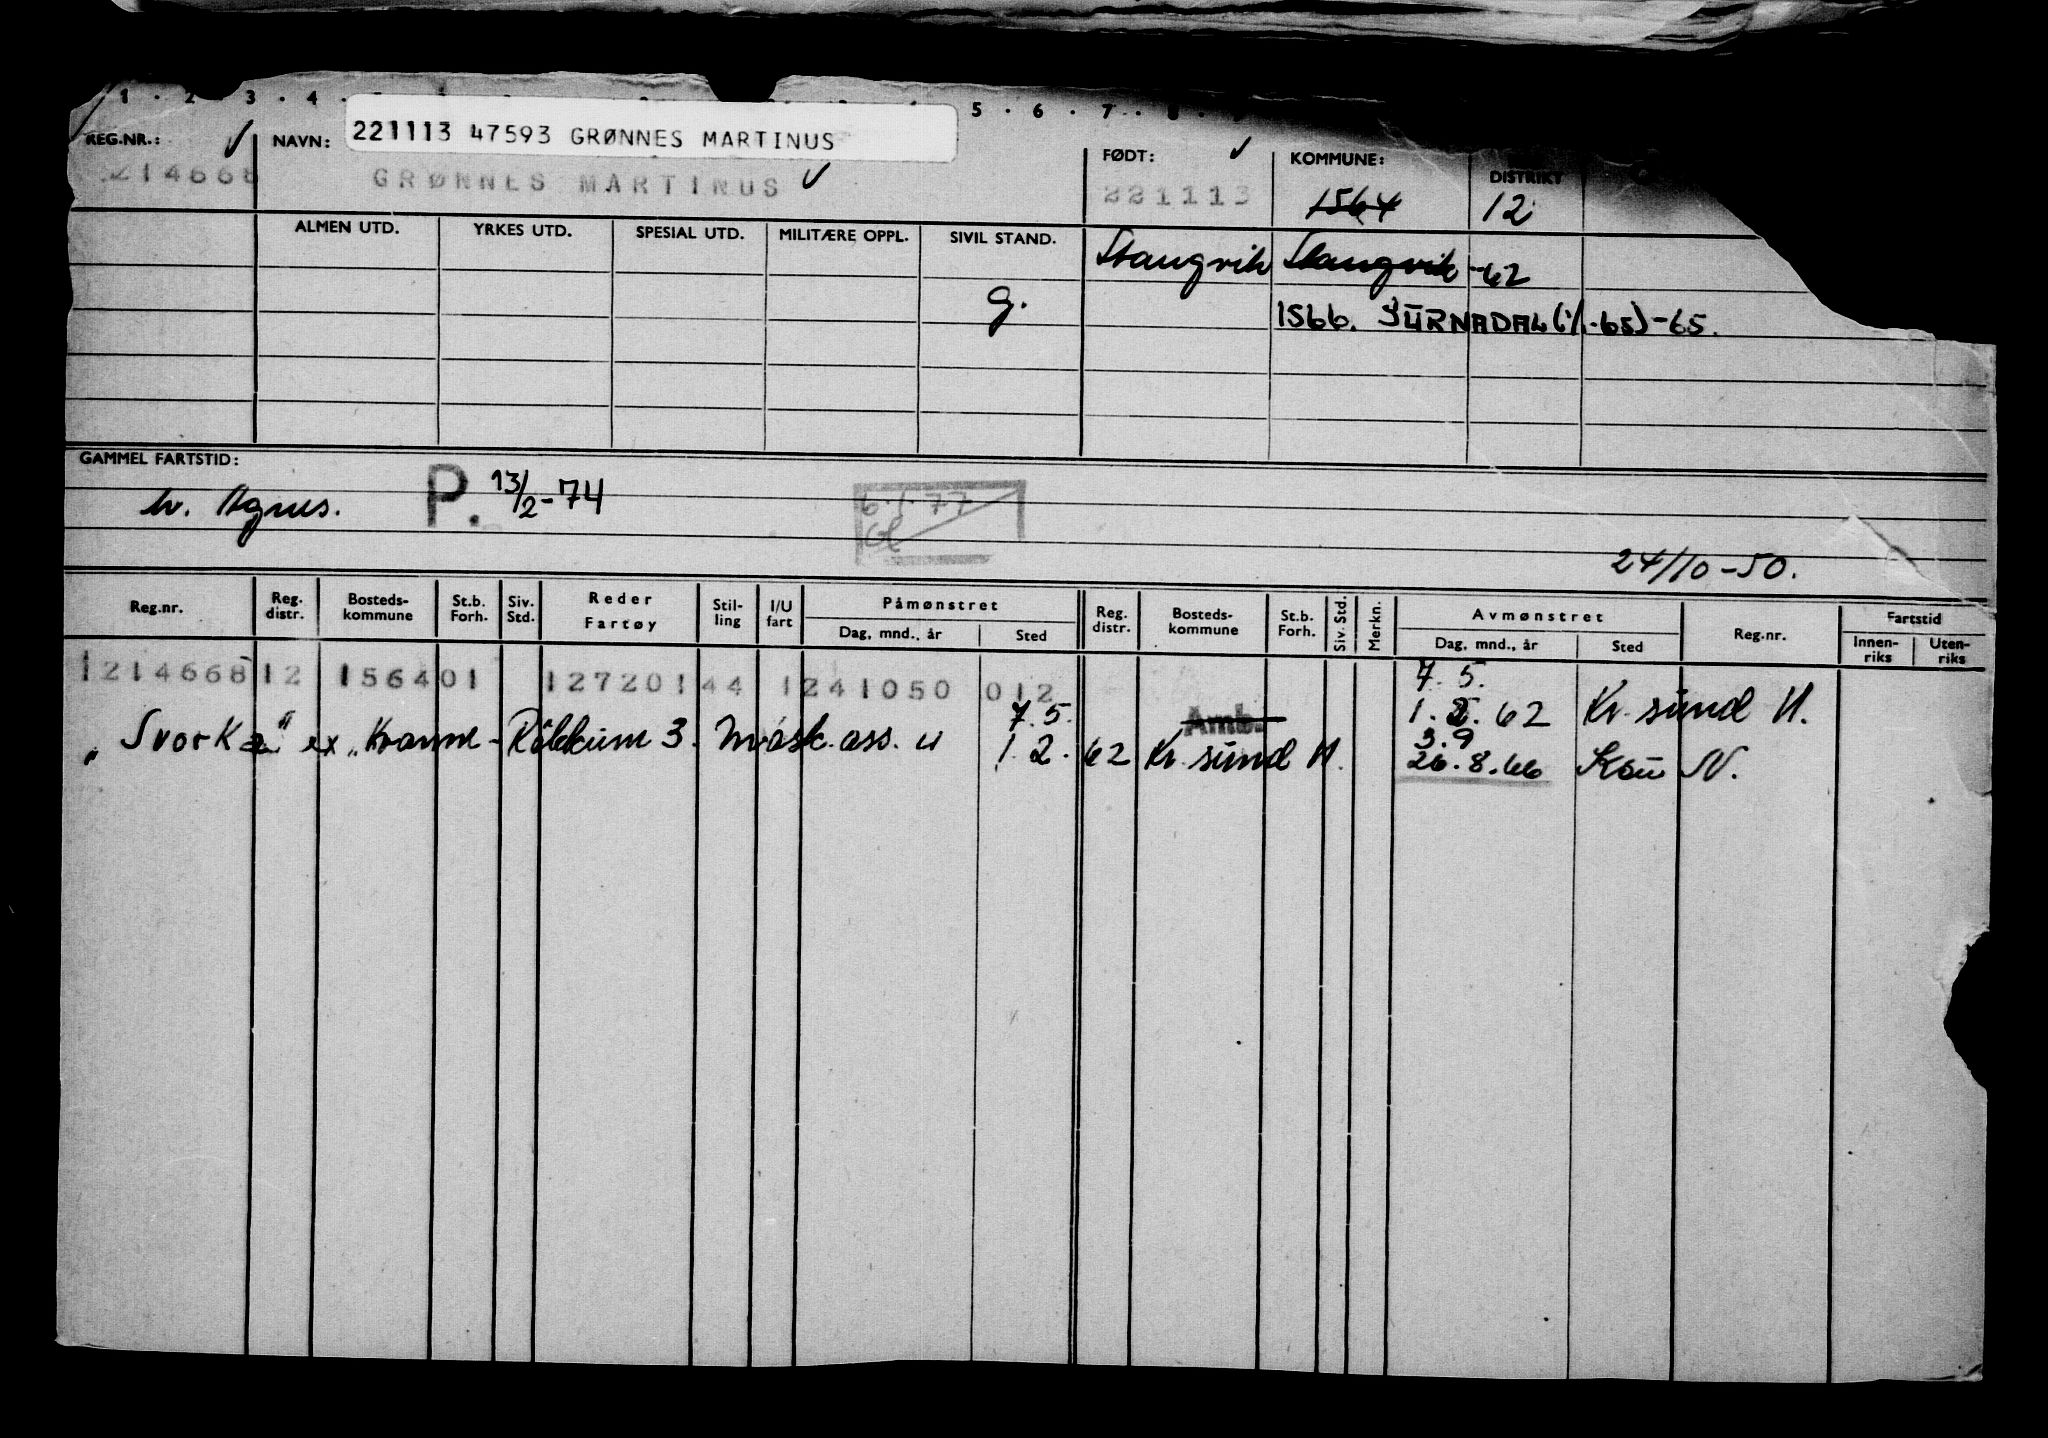 1 · 2 · 3 · 4 · 5 · 6 · 7 · 8
221113 47593 GRØNNES MARTINUS
REG.NR.: NAVN: FØDT: KOMMUNE: DISTRIKT
214668 GRØNNES MARTINUS 221113 1564 12
ALMEN UTD. YRKES UTD. SPESIAL UTD. MILITÆRE OPPL. SIVIL STAND.
Stangvik Stangvik -62
g. 1566. SURNADAL (1/1-65) -65.
GAMMEL FARTSTID:
hr. Agnes. P. 13/2-74 6.1.77
24/10-50.
Reg.nr. Reg. distr. Bosteds-kommune St.b. Forh. Siv. Std. Reder Fartøy Stil-ling I/U fart Påmønstret Dag, mnd., år Sted Reg. distr. Bosteds-kommune St.b. Forh. Siv. Std. Merkn. Avmønstret Dag, mnd., år Sted Reg.nr. Fartstid Innen-riks Uten-riks
1214668 12 156401 127201 44 1 241050 012 7.5.
1.2.62 Kr.sund N.
"Svorka" ex "Kranm - Rökkum 3. mask.ass. u 7.5. 1.2.62 Kr.sund N. Amb. 3.9
26.8.66 Ksu N.